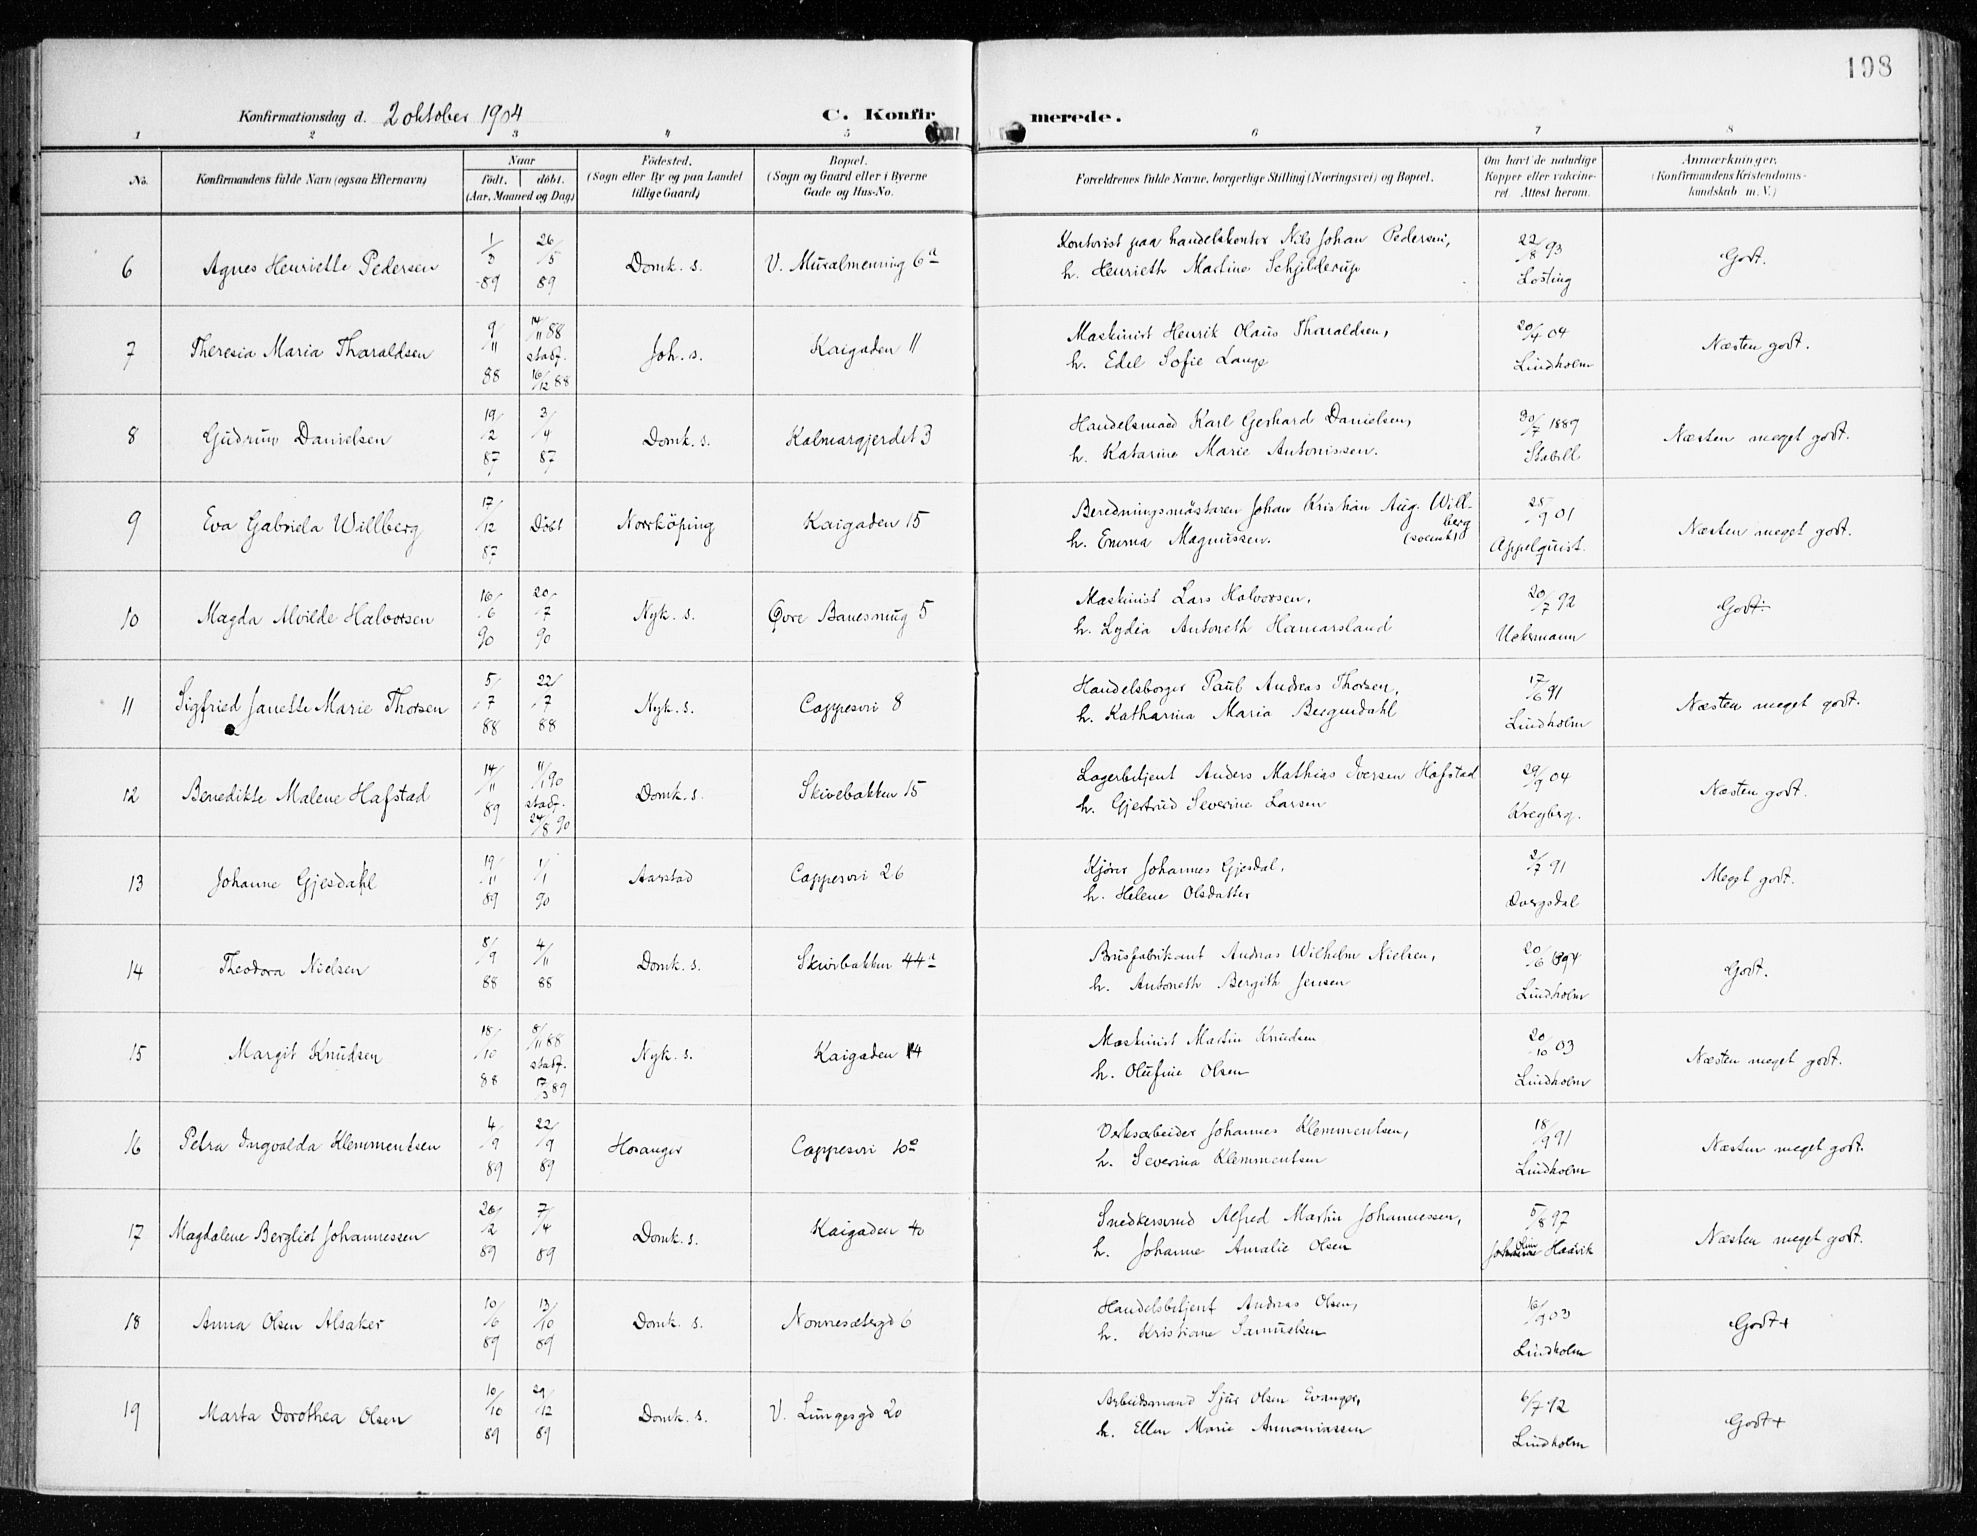 198
Konfirmationsdag d. 2 oktober 1904
C. Konfirmerede.
1 2 3 " 5 6 7 8
No.
Konfirmandens fulde Navn (ogsaa Efternavn)
Naar
født. døbt.
(Aar, Maaned og Dag)
Fødested.
(Sogn eller By og paa Landet
tillige Gaard)
Bopæl.
(Sogn og Gaard eller i Byerne
Gade og Hus-No.
Forældrenes fulde Navne, borgerlige Stilling (Næringsvei) og Bopæl.
Om havt de naturlige
Kopper eller vakcine-
ret. Attest herom.
Anmærkninger,
(Konfirmandens Kristendoms-
kundskab m. V.)
6 Agnes Henriette Pedersen 1/3 89 26/5 89 Domk. s. V. Muralmenning 6a
Kontorist paa handelskontor Nils Johan Pedersen,
h. Henrieth Martine Schjelderup
22/8 93 Losting Godt.
7 Theresia Maria Tharaldsen 9/11 88 14/11 88 stadf. 16/12 88 Joh. s. Kaigaden 11
Maskinist Henrik Olaus Tharaldsen,
h. Edel Sofie Lange
20/4 04 Lindholm Næsten godt.
8 Gudrun Danielsen 19/2 87 3/4 87 Domk. s. Kalmargjerdet 3
Handelsmand Karl Gerhard Danielsen,
h. Katarine Marie Antonissen.
/7 1889 Stabell Næsten meget godt.
9 Eva Gabriela Willberg 17/12 87 Døbt Norrköping Kaigaden 15
Beredningsmästaren Johan Kristian Aug. Will-
berg
h. Emma Magnussen. (svensk)
25/9 01 Appelquist. Næsten meget godt.
10 Magda Alvilde Halvorsen 16/6 90 20/7 90 Nyk. s. Øvre Banesmug 5
Maskinist Lars Halvorsen,
h. Lydia Antoneth Hamarsland
20/7 92 Uckermann Godt÷
11 Sigfried Janette Marie Thorsen 5/7 88 22/7 88 Nyk. s. Cappesvei 8
Handelsborger Paul Andreas Thorsen,
h. Katharina Maria Bergendahl
17/6 91 Lindholm Næsten meget godt.
12 Benedikte Malene Hafstad 14/11 89 11/1 90 stadf. 24/8 90 Domk. s. Skivebakken 15
Lagerbetjent Anders Mathias Iversen Hafstad
h. Gjertrud Severine Larsen
29/9 04 Næsten godt.
13 Johanne Gjesdahl 19/11 89 1/1 90 Aarstad Cappesvei 26
Kjører Johannes Gjesdal,
h. Helene Olsdatter
2/7 91 Dvergsdal Meget godt.
14 Theodora Nielsen 8/9 88 4/11 88 Domk. s. Skivebakken 44a
Brusfabrikant Andreas Wilhelm Nielsen,
h. Antoneth Bergith Jensen
20/6 1894 Lindholm Godt.
15 Margit Knudsen 18/10 88 8/11 88 stadf. 17/3 89 Nyk. s. Kaigaden 14
Maskinist Martin Knudsen
h. Olufine Olsen
20/10 03 Lindholm Næsten meget godt.
16 Petra Ingvalda Klemmentsen 4/9 89 22/9 89 Hosanger Cappesvei 10a
Verksarbeider Johannes Klemmentsen,
h. Severina Klemmentsen
18/9 91 Lindholm Næsten meget godt.
17 Magdalene Bergliot Johannessen 26/2 89 7/4 89 Domk. s. Kaigaden 40
Snedkersvend Alfred Martin Johannessen,
h. Johanne Amalie Olsen
5/8 97 Haavik Næsten meget godt.
18 Anna Olsen Alsaker 10/6 89 13/10 89 Domk. s. Nonnesætergd 6
Handelsbetjent Andreas Olsen,
h. Kristiane Samuelsen
16/9 03 Lindholm Godt+
19 Marta Dorothea Olsen 10/10 89 29/12 89 Domk. s. V. Lungegd 20
Arbeidsmand Sjur Olsen Evanger,
h. Ellen Marie Annaniassen
6/7 92 Lindholm Godt+